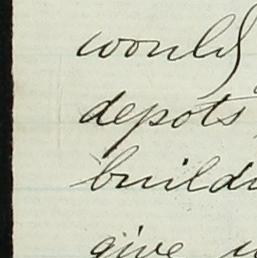 would
depots
buildi
give